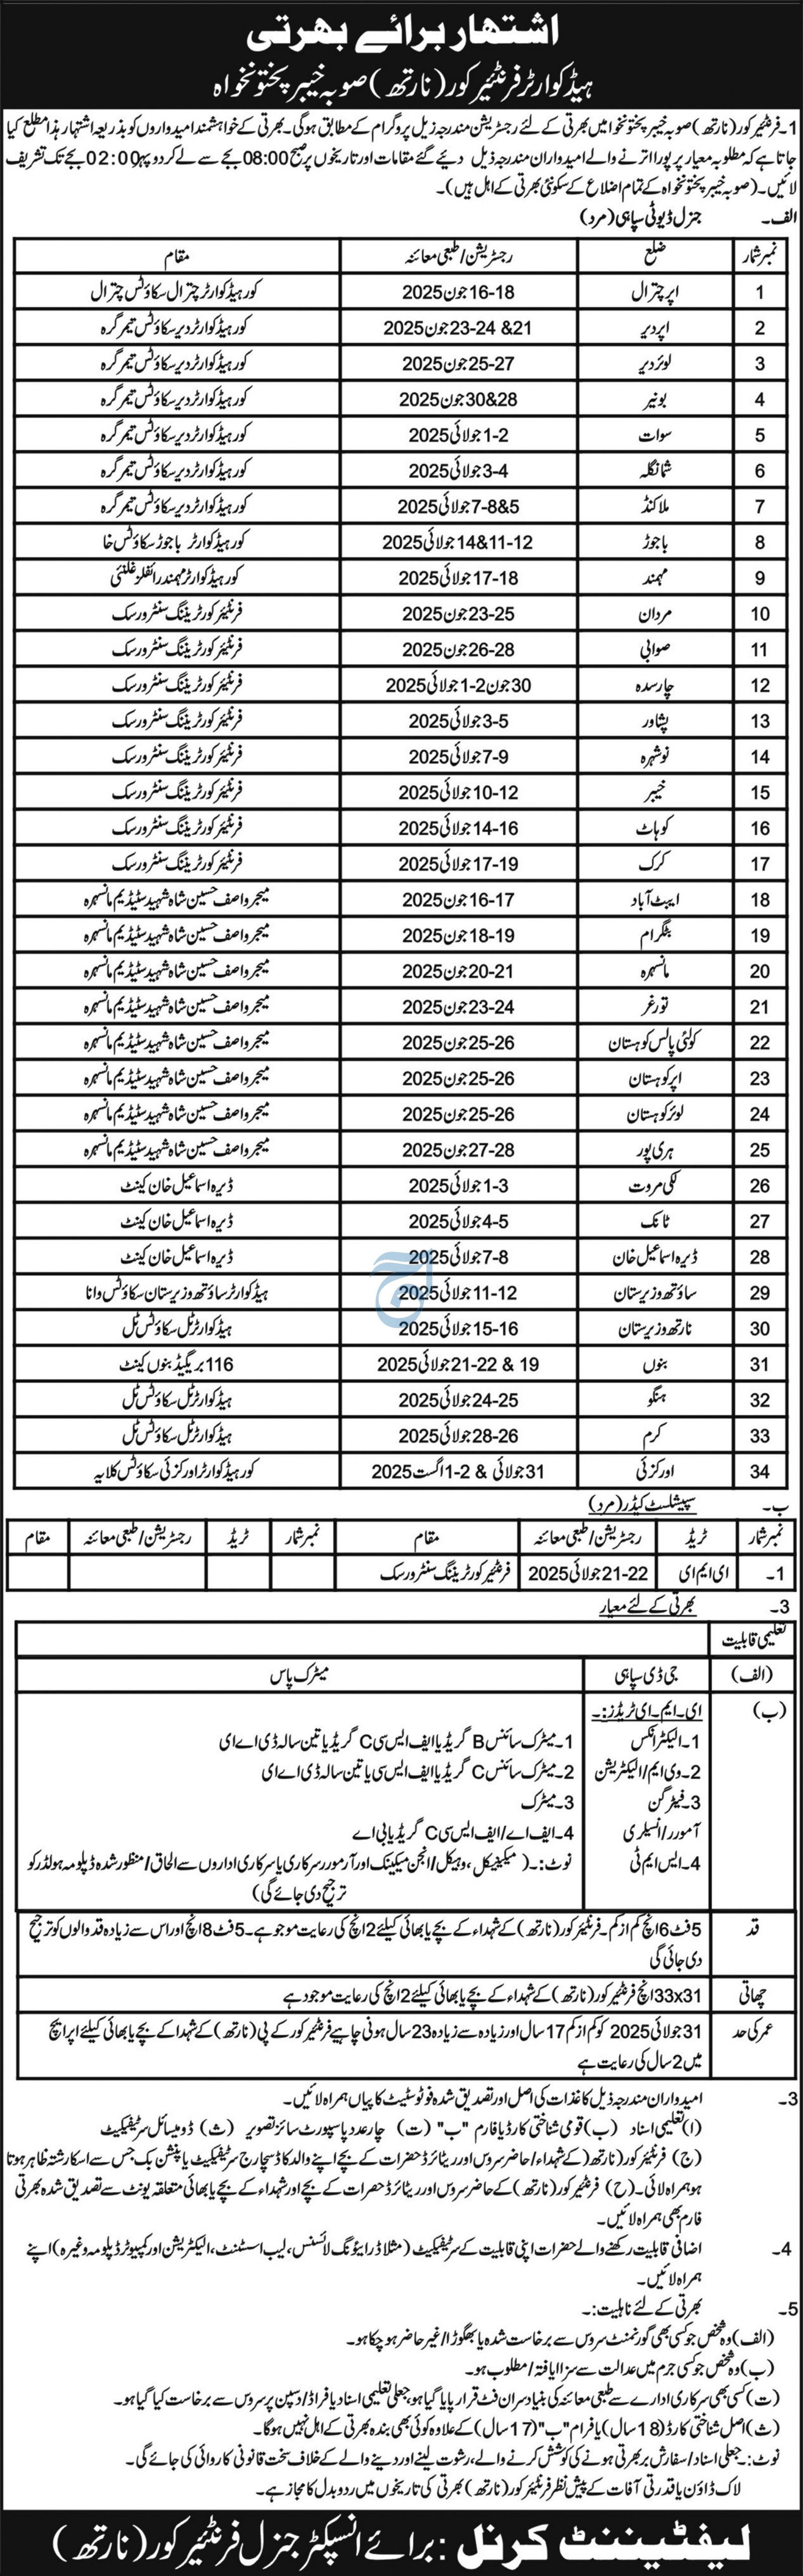 اشتہار برائے بھرتی
ہیڈ کوارٹر فرنٹیئر کور (نارتھ) صوبہ خیبر پختونخواہ
1۔ فرنٹیئر کور (نارتھ) صوبہ خیبر پختونخوا میں بھرتی کے لئے رجسٹریشن مندرجہ ذیل پروگرام کے مطابق ہو گی۔ بھرتی کے خواہشمند امیدواروں کو بذریعہ اشتہار ہذا مطلع کیا
جاتا ہے کہ مطلوبہ معیار پر پورا اترنے والے امیدواران مندرجہ ذیل دیئے گئے مقامات اور تاریخوں پر صبح 08:00 بجے سے لے کر دوپہر 02:00 بجے تک تشریف
لائیں۔ (صوبہ خیبر پختونخواہ کے تمام اضلاع کے سکونتی بھرتی کے اہل ہیں)۔
الف۔ جنرل ڈیوٹی سپاہی (مرد)
نمبر شمار ضلع رجسٹریشن/طبعی معائنہ مقام
1 اپر چترال 16-18 جون 2025 کور ہیڈ کوارٹر چترال سکاؤٹس چترال
2 اپر دیر 21& 23-24 جون 2025 کور ہیڈ کوارٹر دیر سکاؤٹس تیمر گرہ
3 لوئر دیر 25-27 جون 2025 کور ہیڈ کوارٹر دیر سکاؤٹس تیمر گرہ
4 بونیر 28&30 جون 2025 کور ہیڈ کوارٹر دیر سکاؤٹس تیمر گرہ
5 سوات 1-2 جولائی 2025 کور ہیڈ کوارٹر دیر سکاؤٹس تیمر گرہ
6 شانگلہ 3-4 جولائی 2025 کور ہیڈ کوارٹر دیر سکاؤٹس تیمر گرہ
7 ملاکنڈ 5&7-8 جولائی 2025 کور ہیڈ کوارٹر دیر سکاؤٹس تیمر گرہ
8 باجوڑ 11-12&14 جولائی 2025 کور ہیڈ کوارٹر باجوڑ سکاؤٹس خا
9 مہمند 17-18 جولائی 2025 کور ہیڈ کوارٹر مہمند رائفلز غلنئی
10 مردان 23-25 جون 2025 فرنٹیئر کور ٹریننگ سنٹر ورسک
11 صوابی 26-28 جون 2025 فرنٹیئر کور ٹریننگ سنٹر ورسک
12 چارسدہ 30 جون 1-2 جولائی 2025 فرنٹیئر کور ٹریننگ سنٹر ورسک
13 پشاور 3-5 جولائی 2025 فرنٹیئر کور ٹریننگ سنٹر ورسک
14 نوشہرہ 7-9 جولائی 2025 فرنٹیئر کور ٹریننگ سنٹر ورسک
15 خیبر 10-12 جولائی 2025 فرنٹیئر کور ٹریننگ سنٹر ورسک
16 کوہاٹ 14-16 جولائی 2025 فرنٹیئر کور ٹریننگ سنٹر ورسک
17 کرک 17-19 جولائی 2025 فرنٹیئر کور ٹریننگ سنٹر ورسک
18 ایبٹ آباد 16-17 جون 2025 میجر واصف حسین شاہ شہید سٹیڈیم مانسہرہ
19 بٹگرام 18-19 جون 2025 میجر واصف حسین شاہ شہید سٹیڈیم مانسہرہ
20 مانسہرہ 20-21 جون 2025 میجر واصف حسین شاہ شہید سٹیڈیم مانسہرہ
21 تورغر 23-24 جون 2025 میجر واصف حسین شاہ شہید سٹیڈیم مانسہرہ
22 کولئی پالس کوہستان 25-26 جون 2025 میجر واصف حسین شاہ شہید سٹیڈیم مانسہرہ
23 اپر کوہستان 25-26 جون 2025 میجر واصف حسین شاہ شہید سٹیڈیم مانسہرہ
24 لوئر کوہستان 25-26 جون 2025 میجر واصف حسین شاہ شہید سٹیڈیم مانسہرہ
25 ہری پور 27-28 جون 2025 میجر واصف حسین شاہ شہید سٹیڈیم مانسہرہ
26 لکی مروت 1-3 جولائی 2025 ڈیرہ اسماعیل خان کینٹ
27 ٹانک 4-5 جولائی 2025 ڈیرہ اسماعیل خان کینٹ
28 ڈیرہ اسماعیل خان 7-8 جولائی 2025 ڈیرہ اسماعیل خان کینٹ
29 ساؤتھ وزیرستان 11-12 جولائی 2025 ہیڈ کوارٹر ساؤتھ وزیرستان سکاؤٹس وانا
30 نارتھ وزیرستان 15-16 جولائی 2025 ہیڈ کوارٹر ٹل سکاؤٹس ٹل
31 بنوں 19 & 21-22 جولائی 2025 116 بریگیڈ بنوں کینٹ
32 ہنگو 24-25 جولائی 2025 ہیڈ کوارٹر ٹل سکاؤٹس ٹل
33 کرم 28-26 جولائی 2025 ہیڈ کوارٹر ٹل سکاؤٹس ٹل
34 اورکزئی 31 جولائی & 1-2 اگست 2025 کور ہیڈ کوارٹر اورکزئی سکاؤٹس کلایہ
ب۔ سپیشلسٹ کیڈر (مرد)
نمبر شمار ٹریڈ رجسٹریشن/طبعی معائنہ مقام نمبر شمار ٹریڈ رجسٹریشن/طبعی معائنہ مقام
1۔ ای ایم ای 21-22 جولائی 2025 فرنٹیئر کور ٹریننگ سنٹر ورسک
3۔ بھرتی کے لئے معیار
تعلیمی قابلیت
(الف) جی ڈی سپاہی میٹرک پاس
(ب) ای۔ایم۔ای ٹریڈز:۔
1۔ الیکٹرانکس 1۔ میٹرک سائنس B گریڈ یا ایف ایس سی C گریڈ یا تین سالہ ڈی اے ای
2۔ وی ایم/الیکٹریشن 2۔ میٹرک سائنس C گریڈ یا ایف ایس سی یا تین سالہ ڈی اے ای
3۔ فیٹر گن 3۔ میٹرک
آمورر/انسیلری 4۔ ایف اے/ایف ایس سی C گریڈ یا بی اے
4۔ ایس ایم ٹی نوٹ:۔ (میکینیکل، وہیکل/انجن میکینک اور آرمورر سرکاری یا سرکاری اداروں سے الحاق/منظور شدہ ڈپلومہ ہولڈر کو
ترجیح دی جائے گی)
قد 5 فٹ 6 انچ کم از کم۔ فرنٹیئر کور (نارتھ) کے شہداء کے بچے یا بھائی کیلئے 2 انچ کی رعایت موجود ہے۔ 5 فٹ 8 انچ اور اس سے زیادہ قد والوں کو ترجیح
دی جائی گی
چھاتی 33x31 انچ فرنٹیئر کور (نارتھ) کے شہداء کے بچے یا بھائی کیلئے 2 انچ کی رعایت موجود ہے
عمر کی حد 31 جولائی 2025 کو کم از کم 17 سال اور زیادہ سے زیادہ 23 سال ہونی چاہیے فرنٹیئر کور کے پی (نارتھ) کے شہدا کے بچے یا بھائی کیلئے اپر ایج
میں 2 سال کی رعایت ہے
3۔ امیدواران مندرجہ ذیل کاغذات کی اصل اور تصدیق شدہ فوٹو سٹیٹ کاپیاں ہمراہ لائیں۔
(ا) تعلیمی اسناد (ب) قومی شناختی کارڈ یا فارم "ب" (ت) چار عدد پاسپورٹ سائز تصویر (ث) ڈومیسائل سرٹیفکیٹ
(ج) فرنٹیئر کور (نارتھ) کے شہداء/حاضر سروس اور ریٹائرڈ حضرات کے بچے اپنے والد کا ڈسچارج سرٹیفکیٹ یا پنشن بک جس سے اسکا رشتہ ظاہر ہوتا
ہو ہمراہ لائی۔ (ح) فرنٹیئر کور (نارتھ) کے حاضر سروس اور ریٹائرڈ حضرات کے بچے اور شہداء کے بچے یا بھائی متعلقہ یونٹ سے تصدیق شدہ بھرتی
فارم بھی ہمراہ لائیں۔
4۔ اضافی قابلیت رکھنے والے حضرات اپنی قابلیت کے سرٹیفکیٹ (مثلا ڈرائیونگ لائسنس، لیب اسسٹنٹ، الیکٹریشن اور کمپیوٹر ڈپلومہ وغیرہ) اپنے
ہمراہ لائیں۔
5۔ بھرتی کے لئے ناہلیت:۔
(الف) وہ شخص جو کسی بھی گورنمنٹ سروس سے برخاست شدہ یا بھگوڑا/غیر حاضر ہو چکا ہو۔
(ب) وہ شخص جو کسی جرم میں عدالت سے سزا یافتہ/مطلوب ہو۔
(ت) کسی بھی سرکاری ادارے سے طبعی معائنہ کی بنیاد پر ان فٹ قرار پایا گیا ہو، جعلی تعلیمی اسناد یا فراڈ/ڈسپلن پر سروس سے برخاست کیا گیا ہو۔
(ث) اصل شناختی کارڈ (18 سال) یا فارم "ب" (17 سال) کے علاوہ کوئی بھی بندہ بھرتی کے اہل نہیں ہوگا۔
نوٹ:۔ جعلی اسناد/سفارش پر بھرتی ہونے کی کوشش کرنے والے، رشوت لینے اور دینے والے کے خلاف سخت قانونی کاروائی کی جائے گی۔
لاک ڈاؤن یا قدرتی آفات کے پیش نظر فرنٹیئر کور (نارتھ) بھرتی کی تاریخوں میں ردوبدل کا مجاز ہے۔
لیفٹیننٹ کرنل: برائے انسپکٹر جنرل فرنٹیئر کور (نارتھ)